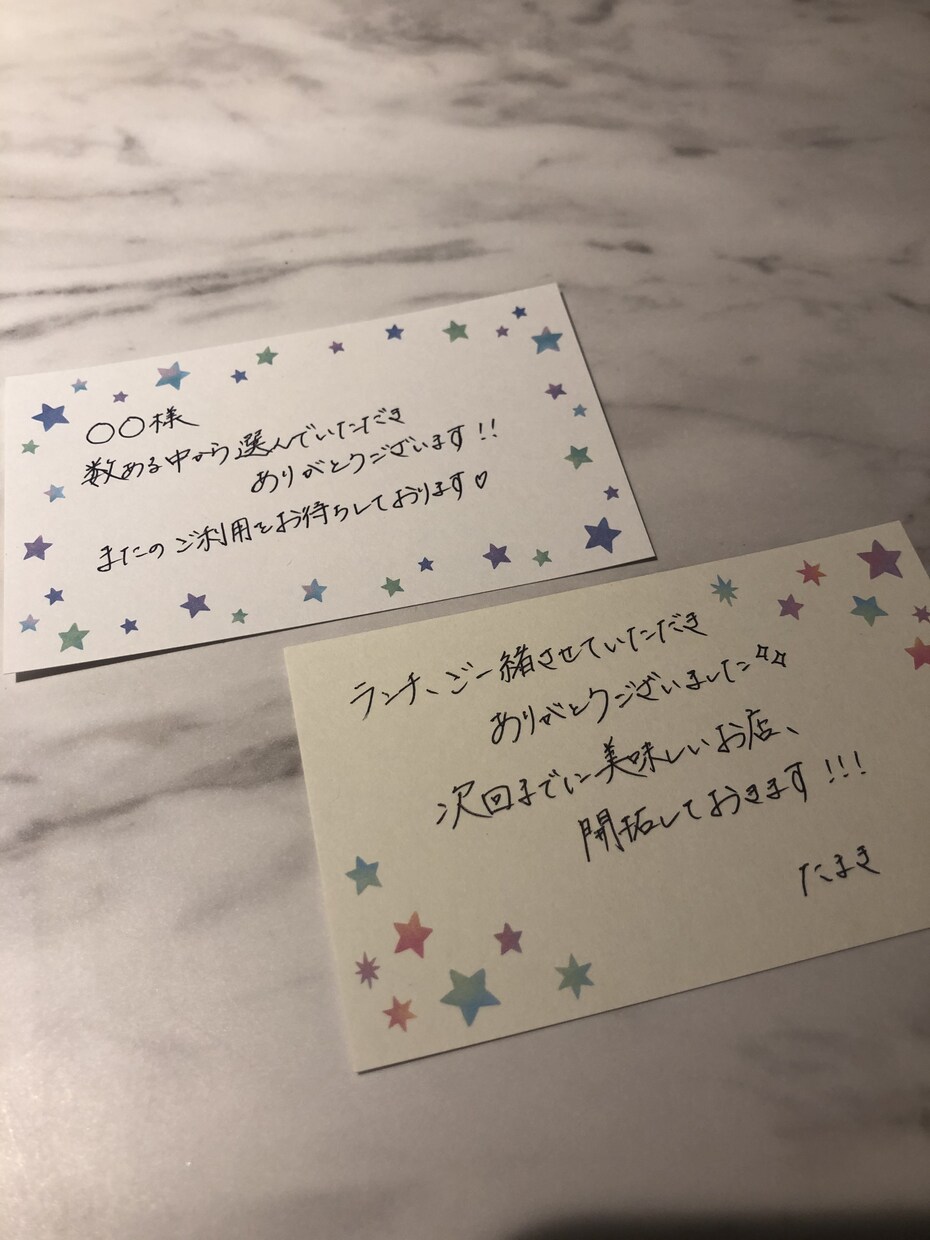 〇〇様
数ある中から選んでいただき
ありがとうございます!!
またのご利用をお待ちしております♡
ランチ、ご一緒させていただき
ありがとうございました✨
次回までに美味しいお店、
開拓しておきます!!!
たまき